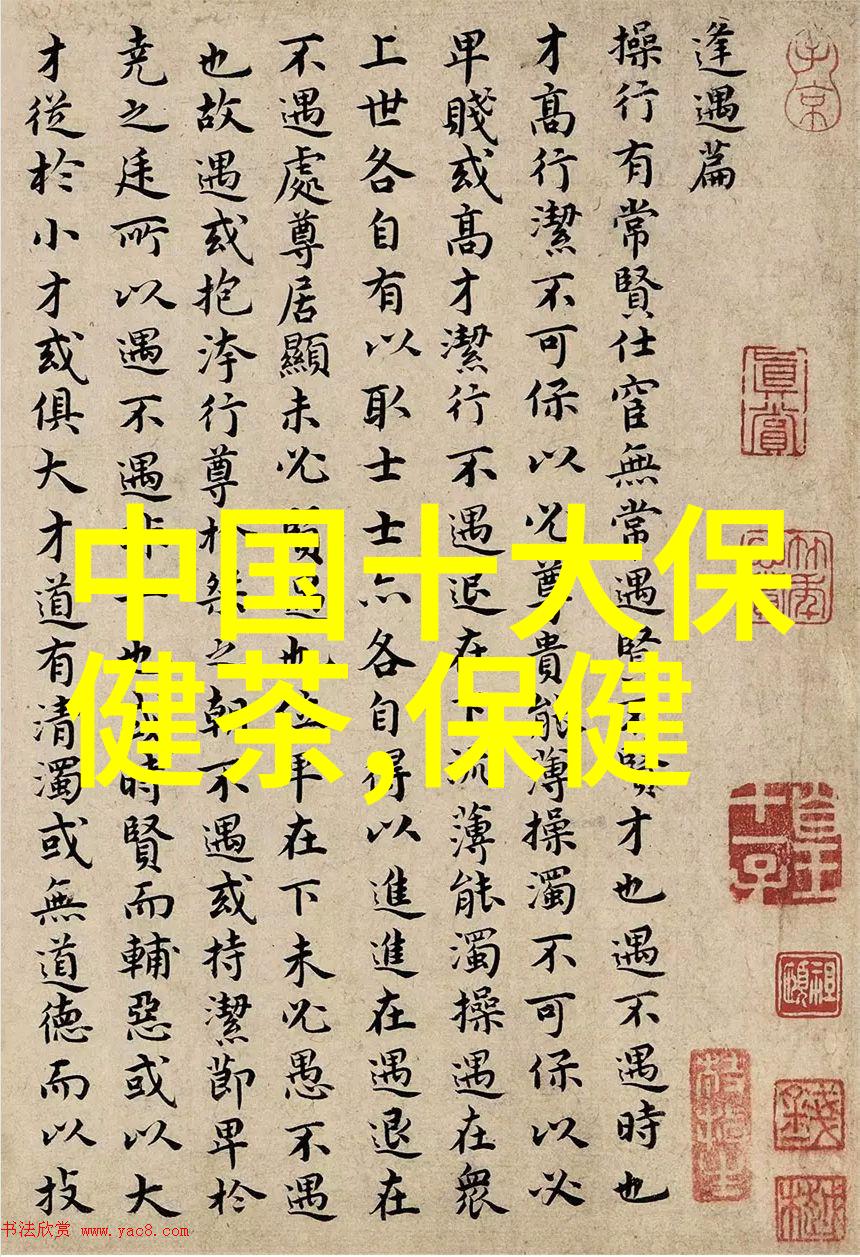 逢遇篇
操行有常賢仕宦無常遇賢不賢才也遇不遇時也
才髙行潔不可保以必尊貴能薄操濁不可保以必
卑賤或髙才潔行不遇退在下流薄能濁操遇在衆
上世各自有以取士士亦各自得以進進在遇退在
不遇處尊居顯未必賢遇也位卑在下未必愚不遇
也故遇或抱洿行尊於桀之朝不遇或持潔節卑於
堯之廷所以遇不遇非一也或時賢而輔惡或以大
才從於小才或俱大才道有清濁或無道德而以技
真賞
中国十大保
健茶,保健
书法欣赏 www.yac8.com